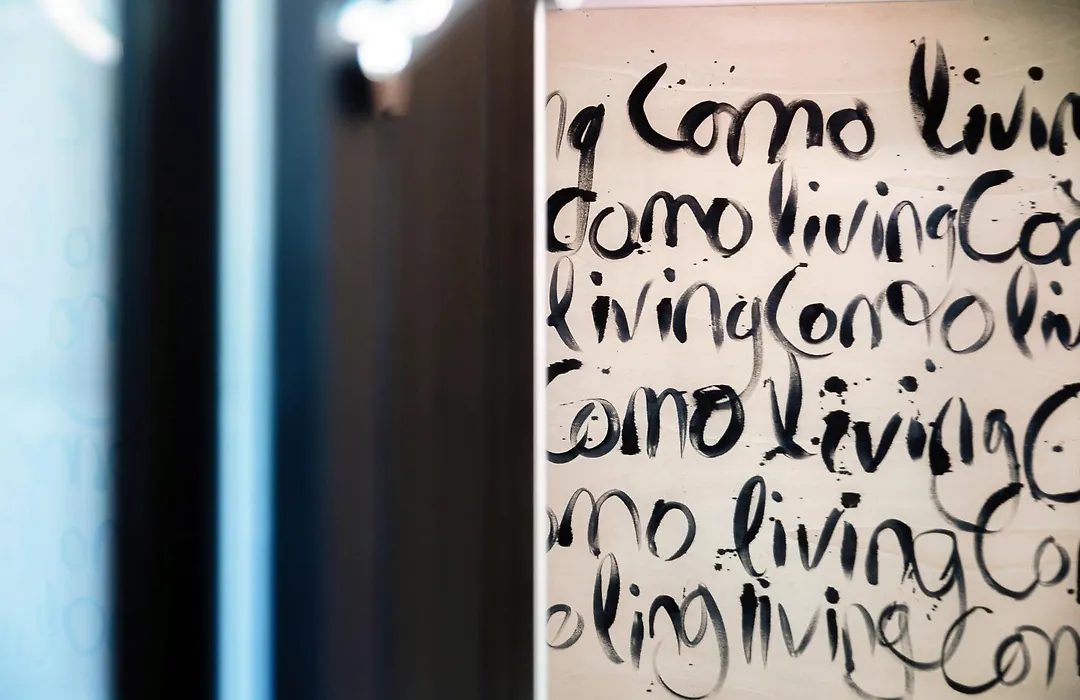 ng Como livin
Como living Com
living Como livi
Como living C
omo living Com
o ling living Com